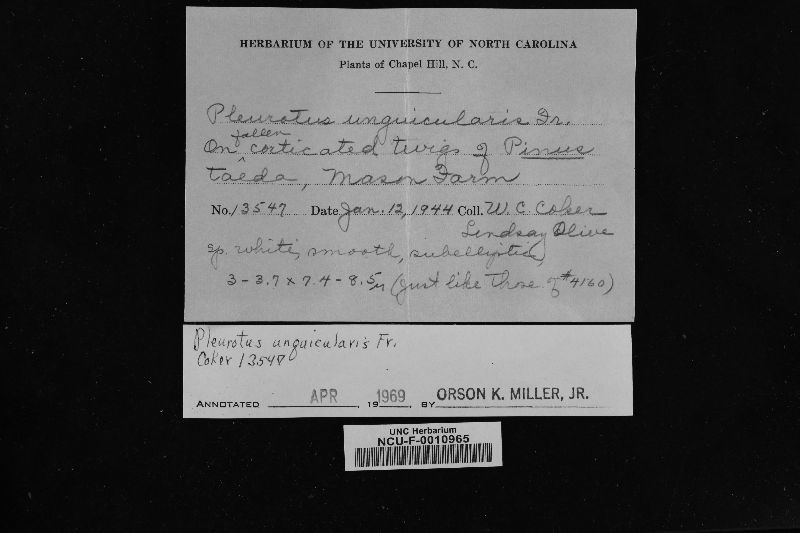 HERBARIUM OF THE UNIVERSITY OF NORTH CAROLINA
Plants of Chapel Hill, N. C.
Pleurotus unguicularis Fr.
On fallen corticated twigs of Pinus
taeda, Mason Farm
No. 13547 Date Jan. 12, 1944 Coll. W. C. Coker
Lindsay Olive
sp. white, smooth, subelliptic,
3 - 3.7 x 7.4 - 8.5µ (just like those of #4160)
Pleurotus unguicularis Fr.
Coker 13547
ANNOTATED APR , 19 1969 , BY ORSON K. MILLER, JR.
UNC Herbarium
NCU-F-0010965